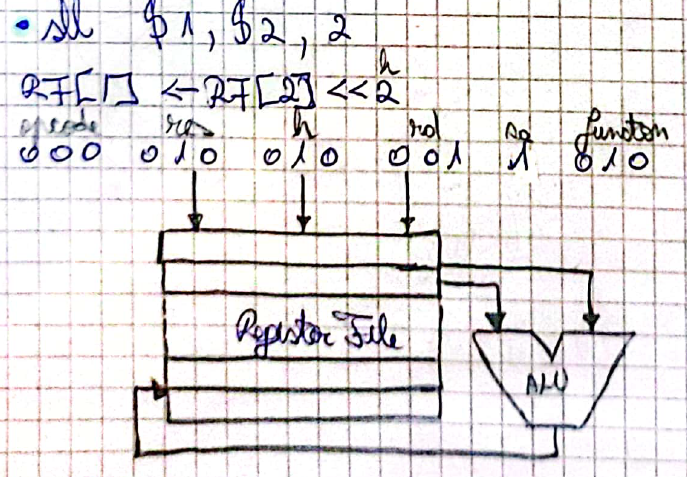 • sll $1, $2, 2
h
RF[1] ← RF[2] << 2
opcode rs rt rd sa function
000 010 010 001 1 010
Register File
ALU